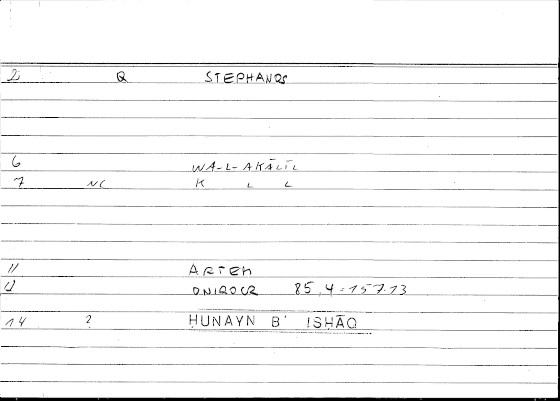 2 Q STEPHANOS
6 WA-L-AKĀLĪL
7 NC K L L
11 ARTEM
12 ONIROCR 85,4 = 157.13
14 ? ḤUNAYN B' ISḤĀQ